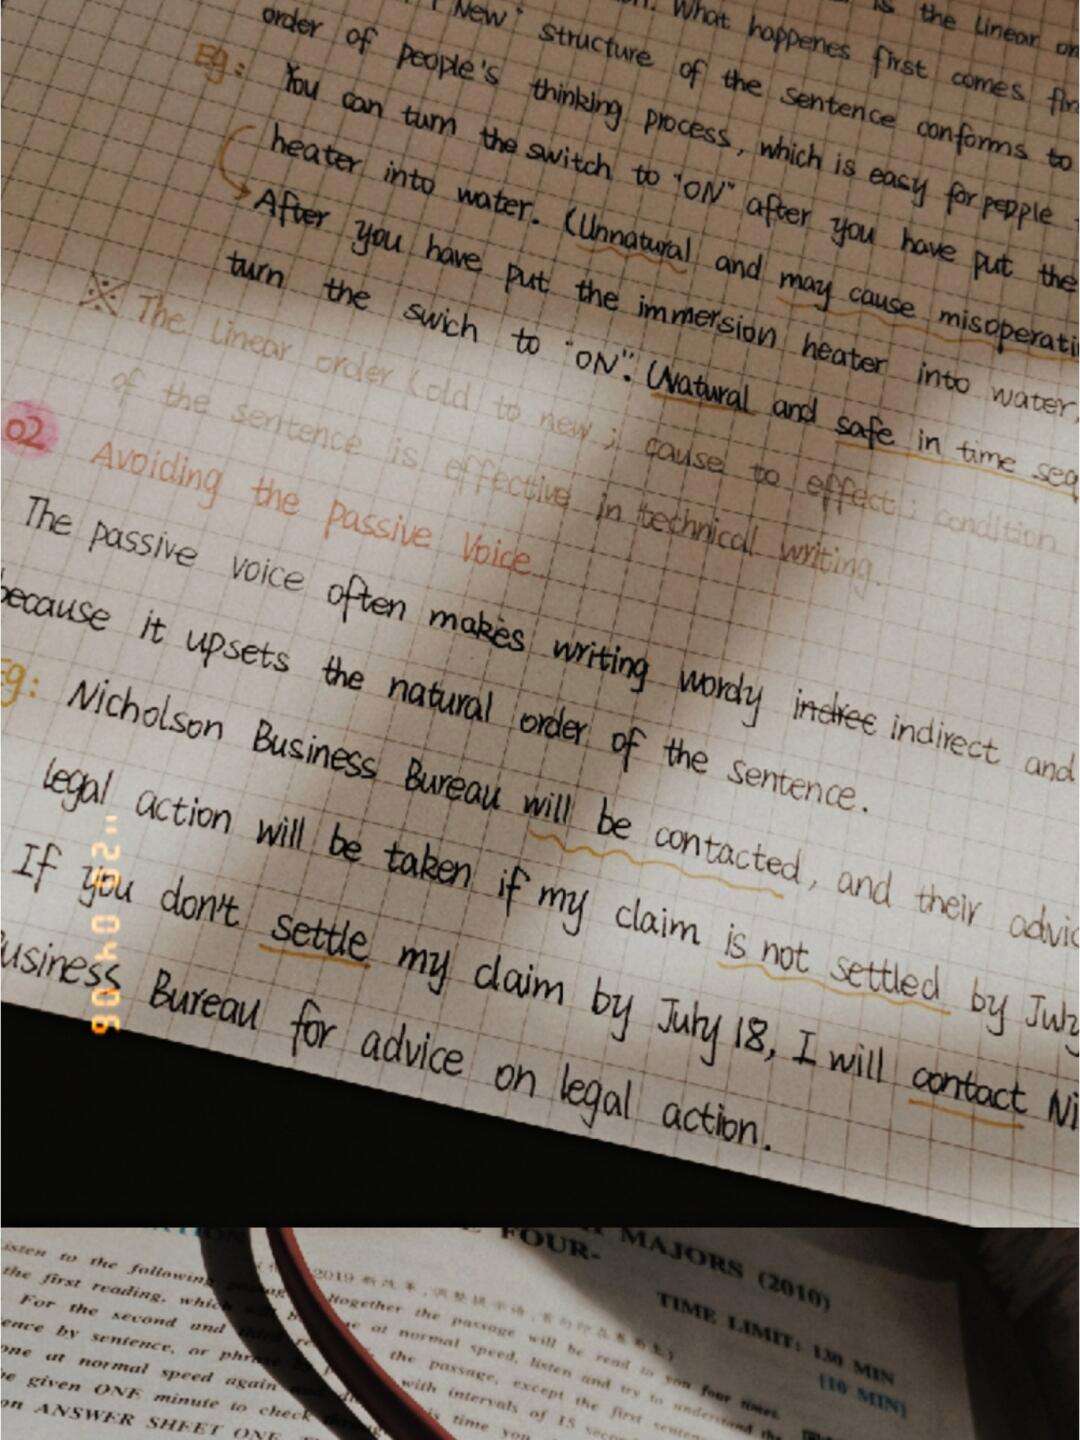 is the linear
"New" structure of the sentence conforms to
What happenes first comes
order of people's thinking process, which is easy for people
Eg: You can turn the switch to "ON" after you have put the
heater into water. (Unnatural and may cause
After you have put the immersion heater into water,
turn the swich to "ON". (Natural and safe in time
※ The linear order (old to new; cause to effect; condition
of the sentence is effective in technical writing.
02 Avoiding the Passive Voice
The passive voice often makes writing wordy indirec indirect and
because it upsets the natural order of the sentence.
Eg: Nicholson Business Bureau will be contacted, and their
legal action will be taken if my claim is not settled by
If you don't settle my claim by July 18, I will contact
Business Bureau for advice on legal action.
" 20 04 06
FOUR-
MAJORS (2010)
TIME LIMIT: 130 MIN
[10 MIN]
Listen to the following
the first reading, which
altogether the passage will be read to you four times.
For the second and
at normal speed, listen and try to understand the
sentence by sentence, or phrase
the passage, except the first
one at normal speed again
with intervals of 15
be given ONE minute to check
time you
on ANSWER SHEET ONE.